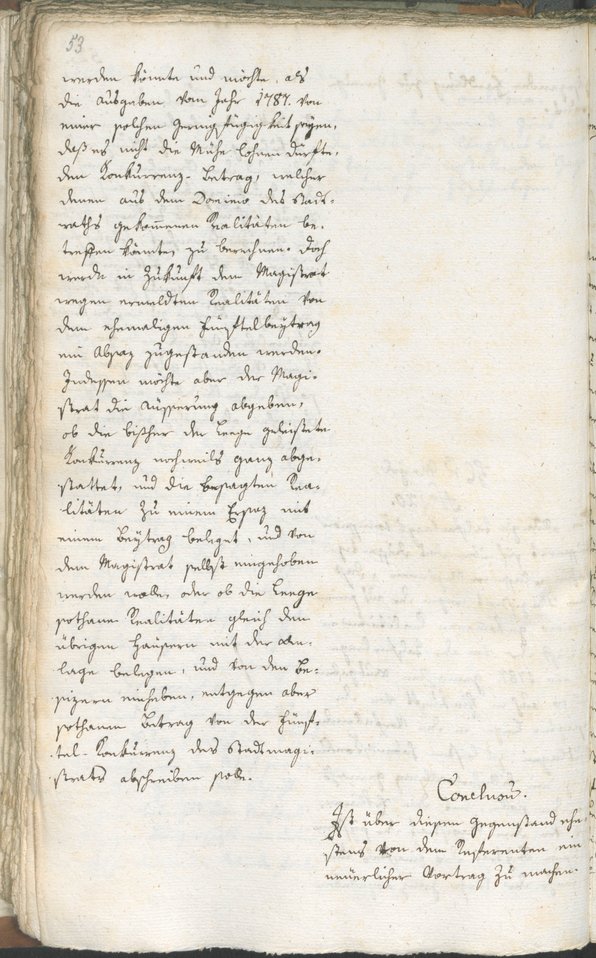 53
werden könnte und möchte, als
die Ausgaben vom Jahr 1787. von
einer solchen Geringfügigkeit seyen,
daß es nicht die Mühe lohnen dürfte,
den Konkurrenz-Betrag, welcher
denen aus dem Dominio des Stadt-
raths gekommenen Realitäten be-
treffen könnte, zu berechnen. Doch
werde in Zukunft dem Magistrat
wegen ermeldten Realitäten von
dem ehemaligen Fünftelbeytrag
ein Absaz zugestanden werden.
Indessen möchte aber der Magi-
strat die Äusserung abgeben,
ob die bißher der Leege geleistete
Konkurrenz nochmals ganz abge-
stattet, und die besagten Rea-
litäten zu einem Ersaz mit
einem Beytrag beleget, und von
dem Magistrat selbst eingehoben
werden wolle, oder ob die Leege
sothane Realitäten gleich den
übrigen Häusern mit der An-
lage belegen, und von den Be-
sizern einheben, entgegen aber
sothanen Beitrag von der Fünf-
tel-Konkurrenz des Stadtmagi-
strats abschreiben solle.
Conclusum.
Ist über diesen Gegenstand ehe-
stens von dem Referenten ein
neuerlicher Vortrag zu machen.